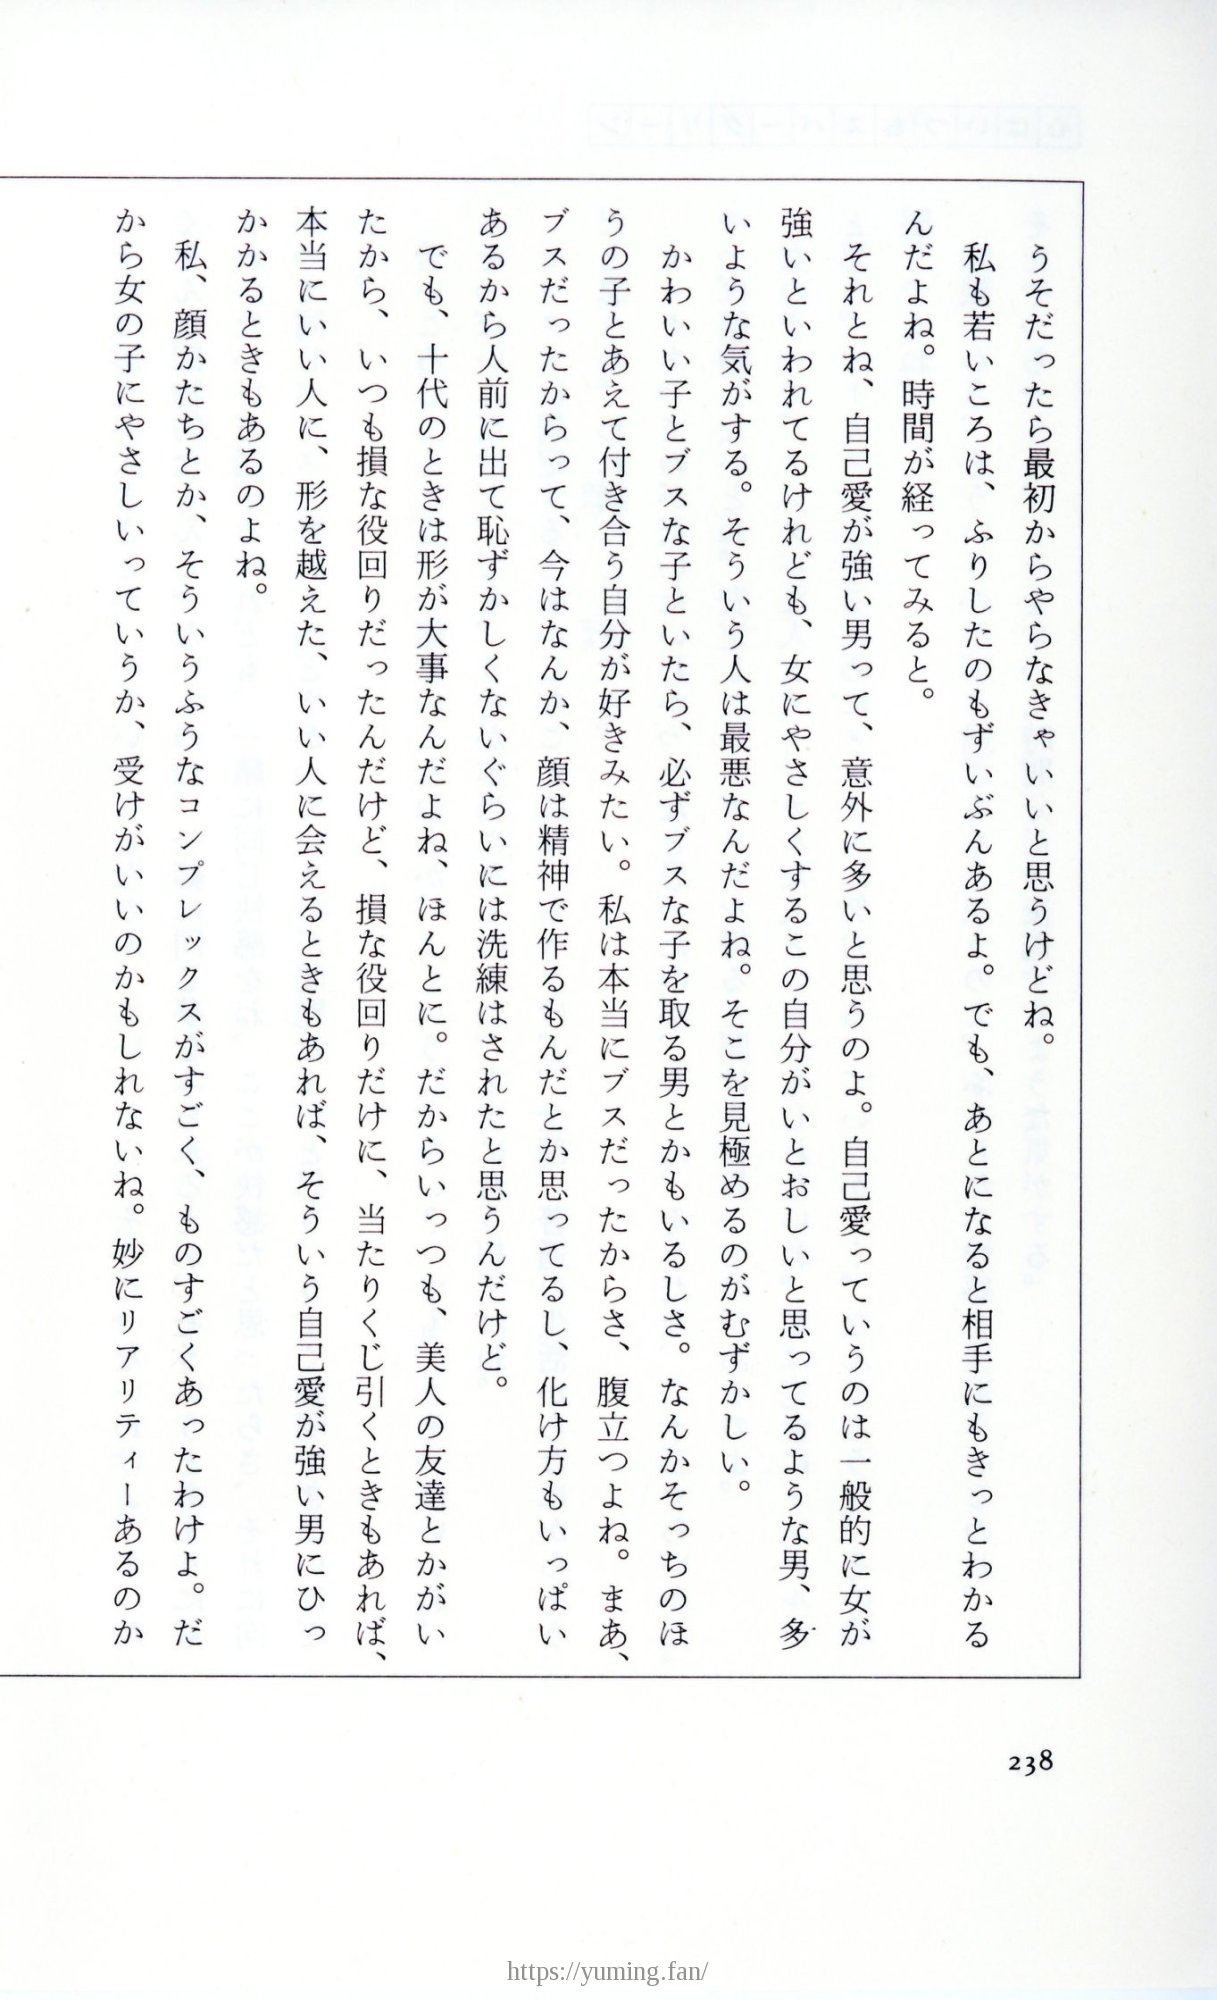 うそだったら最初からやらなきゃいいと思うけどね。
私も若いころは、ふりしたのもずいぶんあるよ。でも、あとになると相手にもきっとわかる
んだよね。時間が経ってみると。
それとね、自己愛が強い男って、意外に多いと思うのよ。自己愛っていうのは一般的に女が
強いといわれてるけれども、女にやさしくするこの自分がいとおしいと思ってるような男、多
いような気がする。そういう人は最悪なんだよね。そこを見極めるのがむずかしい。
かわいい子とブスな子といたら、必ずブスな子を取る男とかもいるしさ。なんかそっちのほ
うの子とあえて付き合う自分が好きみたい。私は本当にブスだったからさ、腹立つよね。まあ、
ブスだったからって、今はなんか、顔は精神で作るもんだとか思ってるし、化け方もいっぱい
あるから人前に出て恥ずかしくないぐらいには洗練はされたと思うんだけど。
でも、十代のときは形が大事なんだよね、ほんとに。だからいっつも、美人の友達とかがい
たから、いつも損な役回りだったんだけど、損な役回りだけに、当たりくじ引くときもあれば、
本当にいい人に、形を越えた、いい人に会えるときもあれば、そういう自己愛が強い男にひっ
かかるときもあるのよね。
私、顔かたちとか、そういうふうなコンプレックスがすごく、ものすごくあったわけよ。だ
から女の子にやさしいっていうか、受けがいいのかもしれないね。妙にリアリティーあるのか
238
https://yuming.fan/